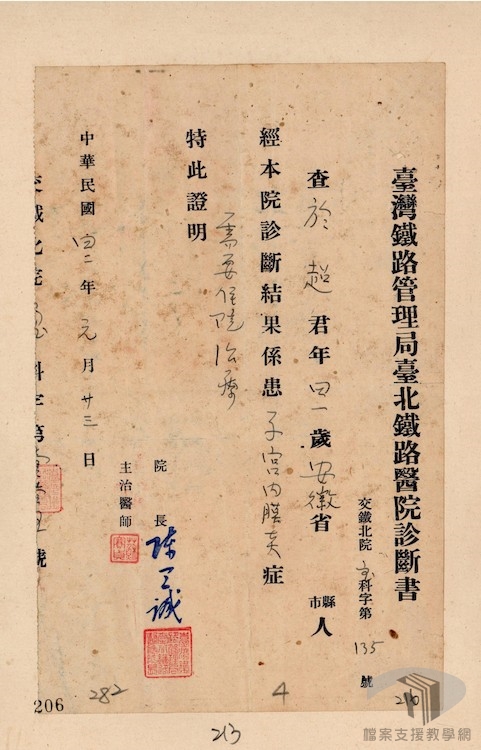 臺灣鐵路管理局臺北鐵路醫院診斷書
交鐵北院 科字第 135 號
查 於超 君年 四一 歲 安徽 省 縣市 人
經本院診斷結果係患 子宮內膜炎 症
需要住院治療
特此證明
院長 陳三誠
主治醫師
中華民國 四二 年 元 月 廿三 日
交鐵北院 科字第 號
206
282
4
210
213
檔案支援教學網